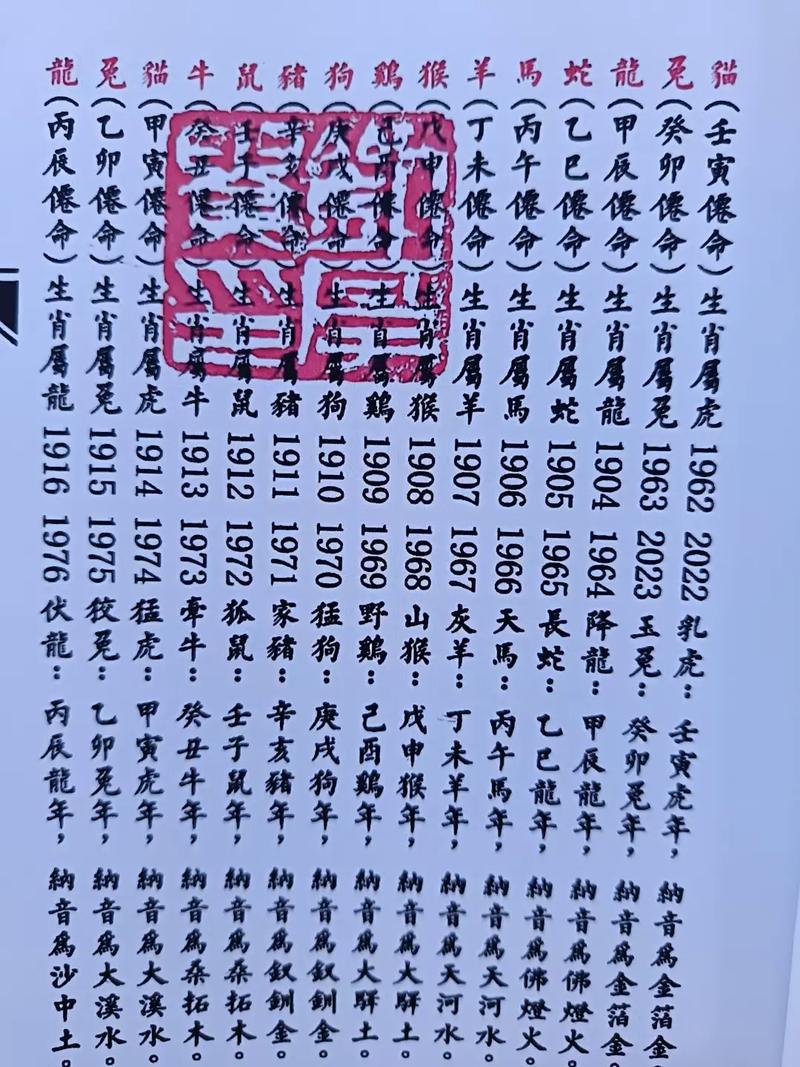 貓(壬寅僊命)生肖屬虎 1962 2022乳虎:壬寅虎年,納音為金箔金。
兔(癸卯僊命)生肖屬兔 1963 2023玉兔:癸卯兔年,納音為金箔金。
龍(甲辰僊命)生肖屬龍 1904 1964降龍:甲辰龍年,納音為佛燈火。
蛇(乙巳僊命)生肖屬蛇 1905 1965長蛇:乙巳龍年,納音為佛燈火。
馬(丙午僊命)生肖屬馬 1906 1966天馬:丙午馬年,納音為天河水。
羊(丁未僊命)生肖屬羊 1907 1967灰羊:丁未羊年,納音為天河水。
猴(戊申僊命)生肖屬猴 1908 1968山猴:戊申猴年,納音為大驛土。
鷄(己酉僊命)生肖屬鷄 1909 1969野鷄:己酉鷄年,納音為大驛土。
狗(庚戌僊命)生肖屬狗 1910 1970猛狗:庚戌狗年,納音為釵釧金。
豬(辛亥僊命)生肖屬豬 1911 1971家豬:辛亥豬年,納音為釵釧金。
鼠(壬子僊命)生肖屬鼠 1912 1972狐鼠:壬子鼠年,納音為桑拓木。
牛(癸丑僊命)生肖屬牛 1913 1973牽牛:癸丑牛年,納音為桑拓木。
貓(甲寅僊命)生肖屬虎 1914 1974猛虎:甲寅虎年,納音為大溪水。
兔(乙卯僊命)生肖屬兔 1915 1975狡兔:乙卯兔年,納音為大溪水。
龍(丙辰僊命)生肖屬龍 1916 1976伏龍:丙辰龍年,納音為沙中土。